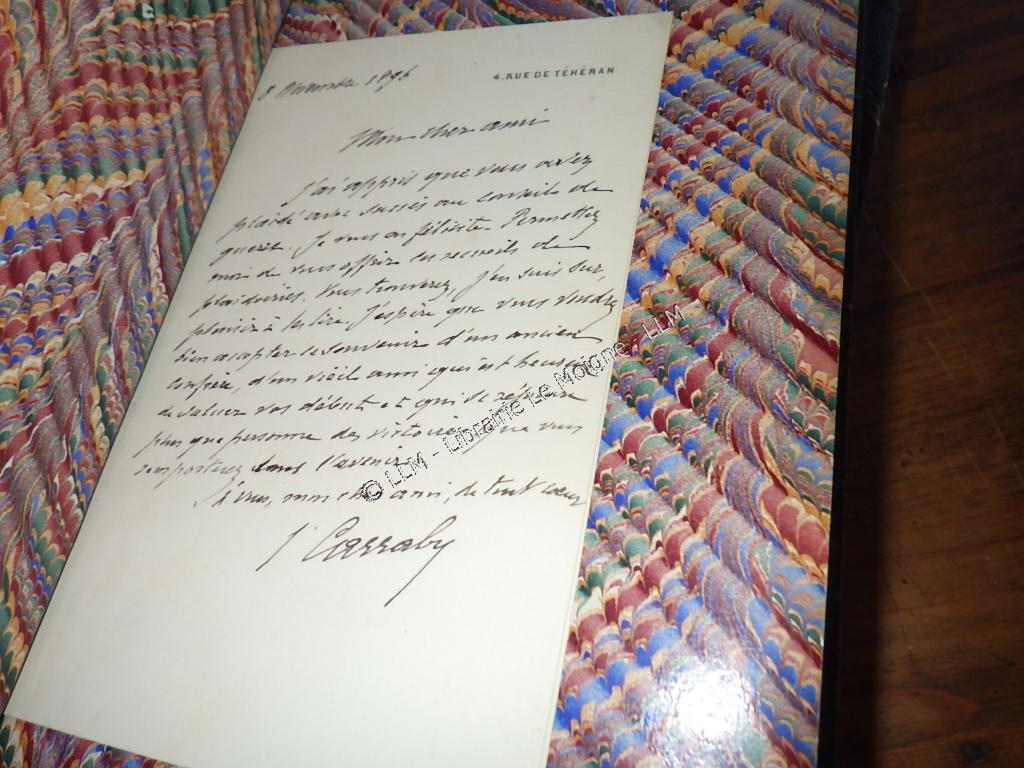 8 Décembre 1896
4. RUE DE TÉHÉRAN
Mon cher ami
J'ai appris que vous aviez
plaidé avec succès au conseil de
guerre. Je vous en félicite. Permettez
moi de vous offrir ces recueils de
plaidoiries. Vous trouverez, j'en suis sur,
plaisir à les lire. J'espère que vous voudrez
bien accepter ce souvenir d'un ancien
confrère, d'un vieil ami qui est heureux
de saluer vos débuts et qui se réjouira
plus que personne des victoires que vous
remporterez dans l'avenir.
à vous, mon cher ami, de tout coeur
Carraby
© LLM - Librairie Le Moigne - LLM